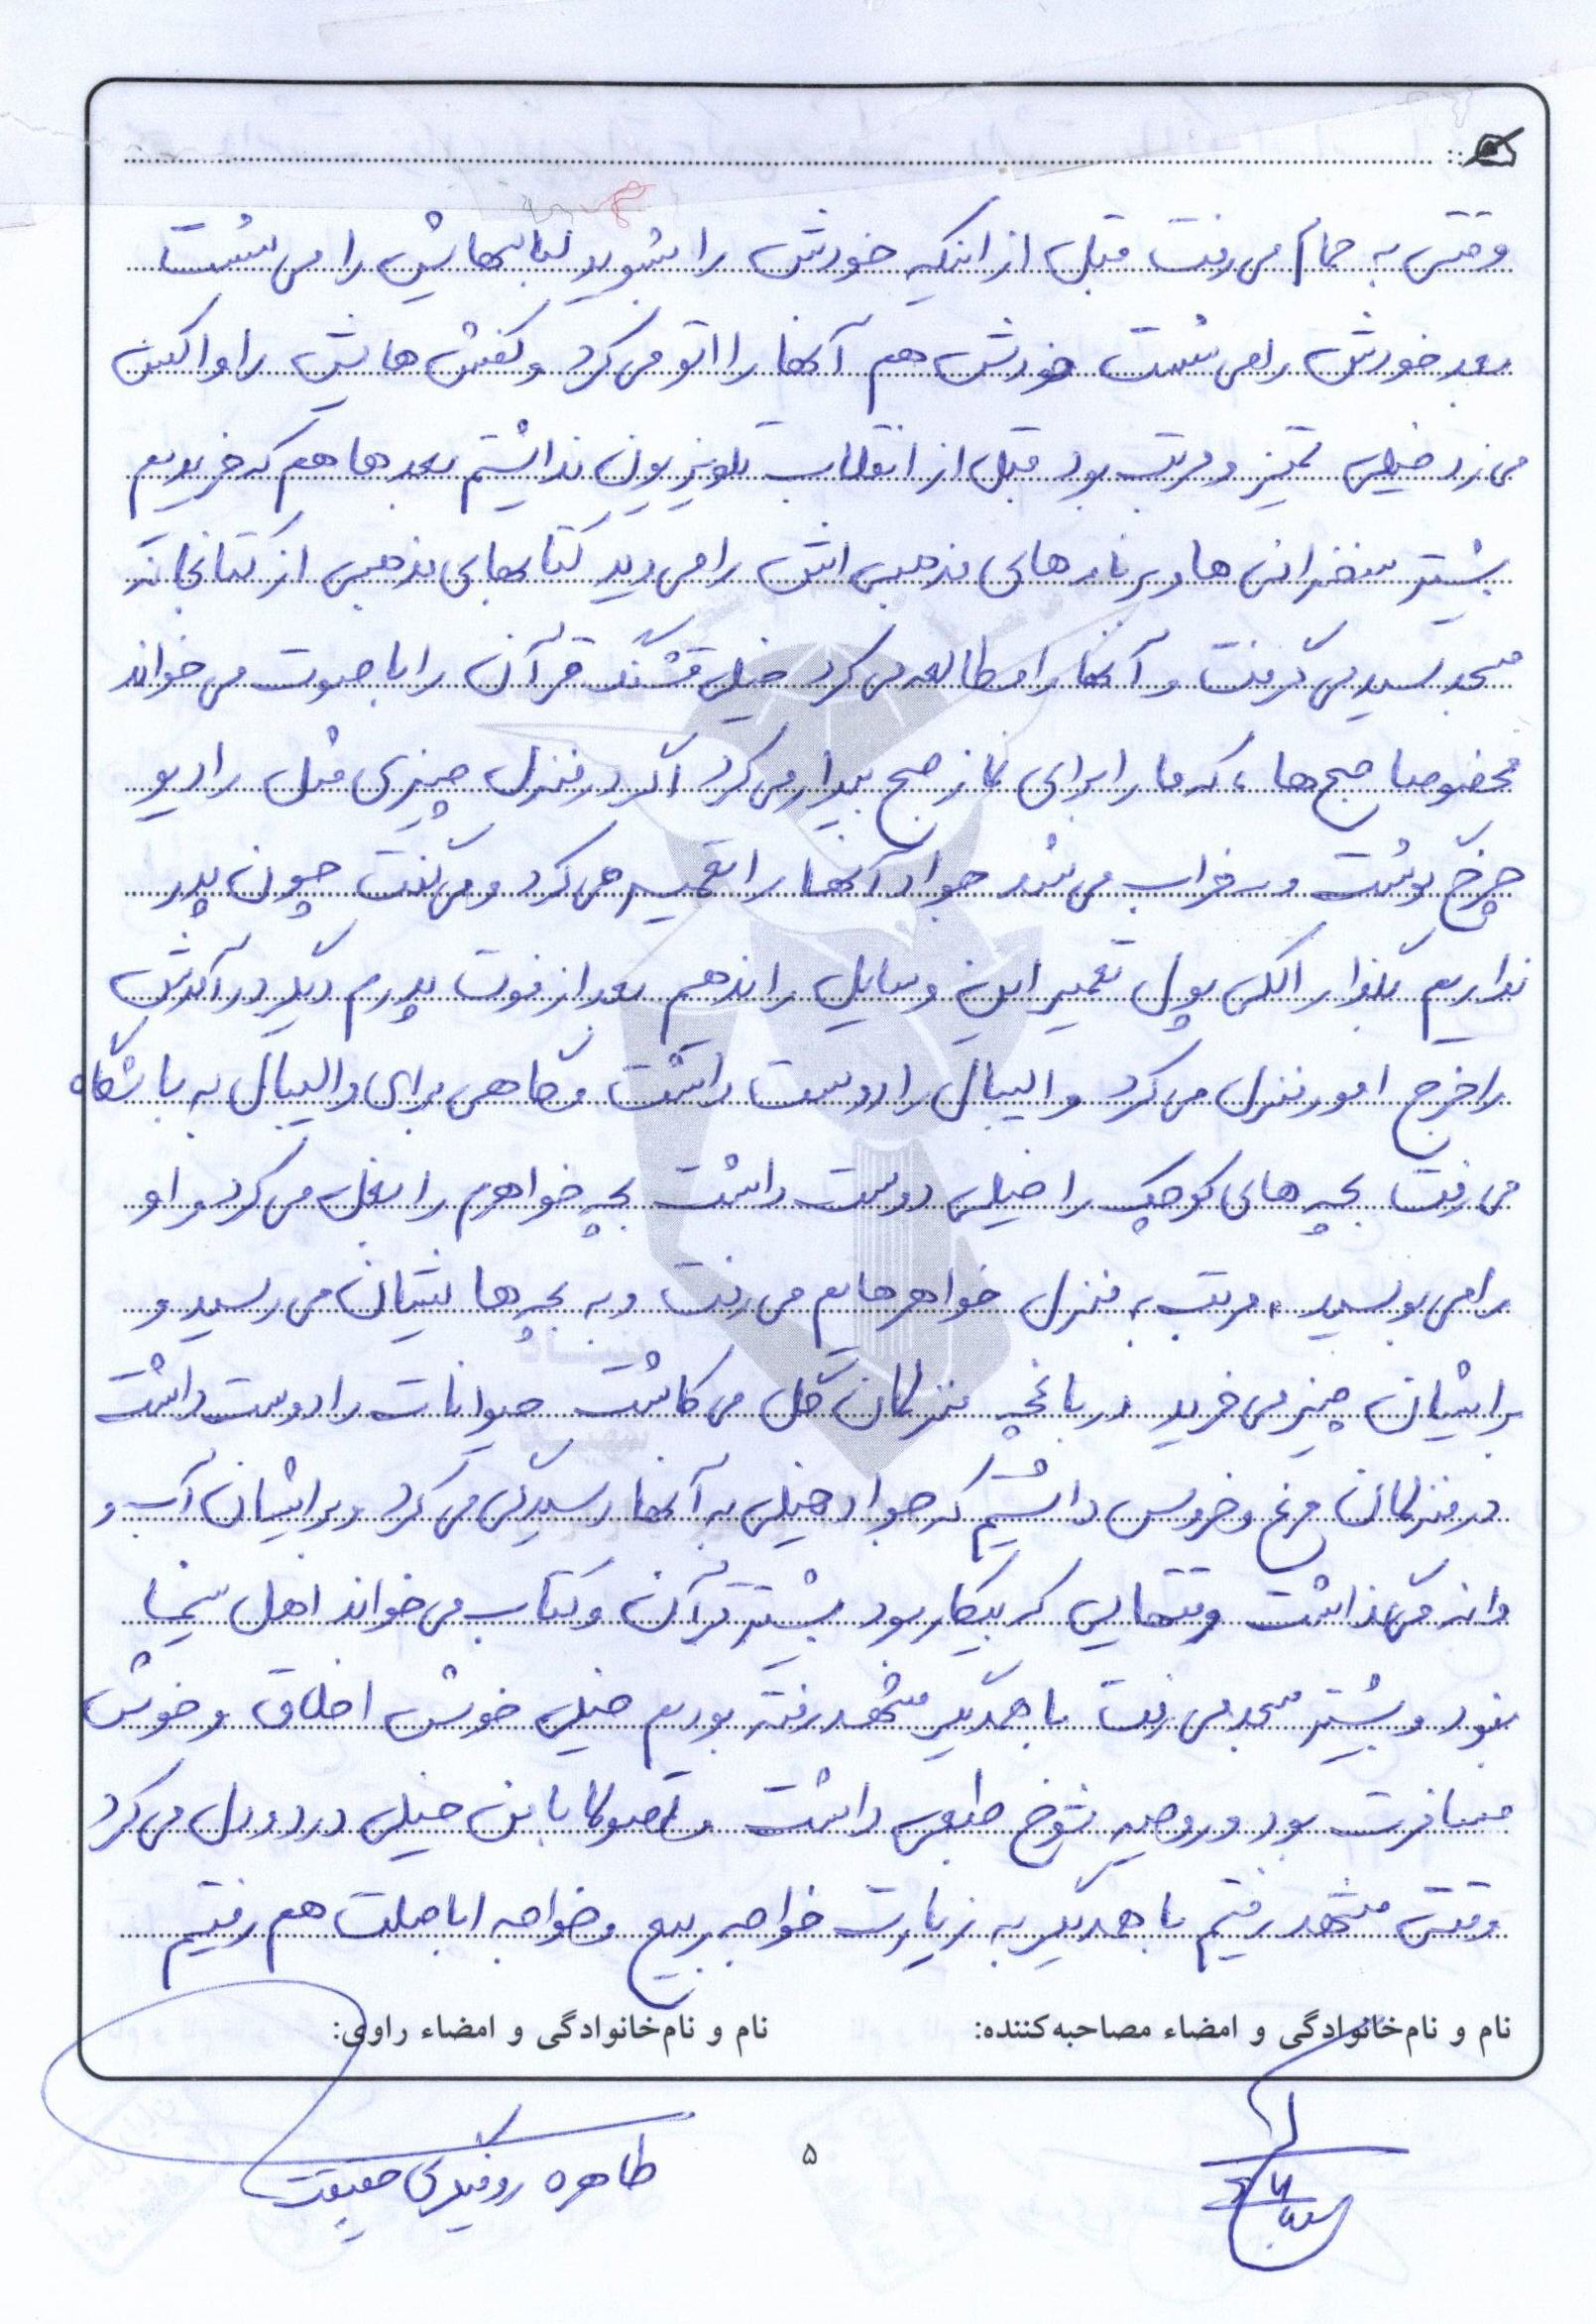 وقتی به حمام می رفت قبل از اینکه خودش را بشوید لباسهایش را می شست
بعد خودش را می شست خودش هم آنها را اتو می کرد و کفش هایش را واکس
می زد خیلی تمیز و مرتب بود قبل از انقلاب تلویزیون نداشتیم بعد ها هم که خریدیم
بیشتر سخنرانی ها و برنامه های مذهبی اش را می دید کتابهای مذهبی از کتابخانه
مسجد سید می گرفت و آنها را مطالعه می کرد خیلی قشنگ قرآن را با صوت می خواند
مخصوصا صبح ها، که ما را برای نماز صبح بیدار می کرد اگر در منزل چیزی مثل رادیو
چرخ گوشت و .. خراب می شد جواد آنها را تعمیر می کرد و می گفت چون پدر
نداریم نگذار الکی پول تعمیر این وسایل را ندهم بعد از فوت پدرم دیگر درآمدش
را خرج امور منزل می کرد والیبال را دوست داشت و گاهی برای والیبال به باشگاه
می رفت بچه های کوچک را خیلی دوست داشت بچه خواهرم را بغل می کرد و او
را می بوسید . مرتب به منزل خواهرهایم می رفت و به بچه ها یشان می رسید و
برایشان چیز می خرید در باغچه منزلمان گل می کاشت حیوانات را دوست داشت
در منزلمان مرغ و خروس داشتیم که جواد خیلی به آنها رسیدگی می کرد و برایشان آب و
دانه می گذاشت وقتهایی که بیکار بود بیشتر قرآن و کتاب می خواند اهل سینما
نبود و بیشتر مسجد می رفت با همدیگر مشهد رفته بودیم خیلی خوش اخلاق و خوش
مسافرت بود و روحیه شوخ طبعی داشت و اصولا با من خیلی درد و دل می کرد
وقتی مشهد رفتیم با همدیگر به زیارت خواجه ربیع و خواجه اباصلت هم رفتیم
نام و نام‌خانوادگی و امضاء مصاحبه‌کننده: نام و نام‌خانوادگی و امضاء راوی:
۵
طاهره روفیگری حقیقت